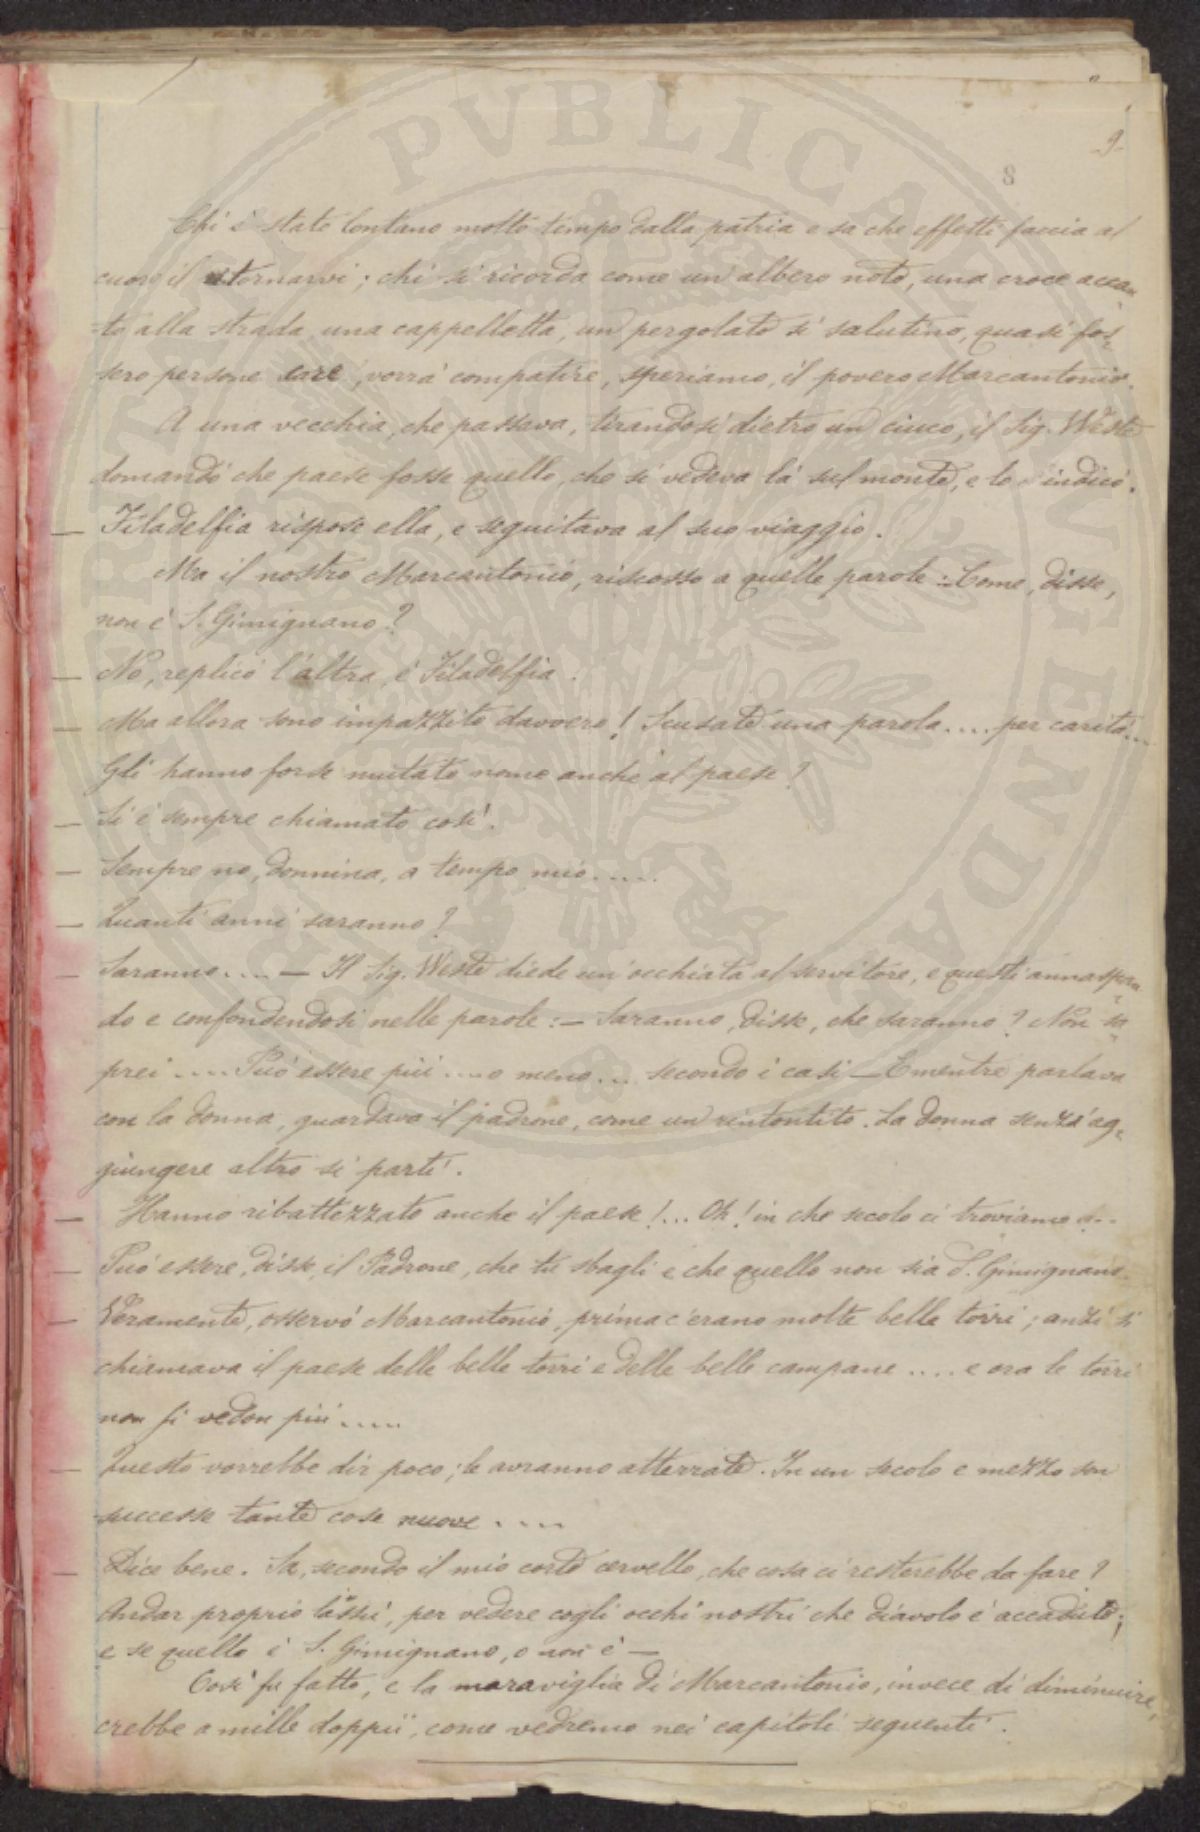 -9-
8
Chi è stato lontano molto tempo dalla patria e sa che effetti faccia al
cuore il ritornarvi; chi si ricorda come un albero noto, una croce accan-
-to alla strada, una cappelletta, un pergolato si salutino, quasi fos-
sero persone care, vorrà compatire, speriamo, il povero Marcantonio.
A una vecchia, che passava, tirandosi dietro un ciuco, il Sig. Weste
domandò che paese fosse quello, che si vedeva là sul monte, e lo indicò.
— Filadelfia rispose ella, e seguitava al suo viaggio.
Ma il nostro Marcantonio, riscosso a quelle parole: - Come, disse,
non è S. Gimignano?
— No, replicò l'altra, è Filadelfia.
— Ma allora sono impazzito davvero! Scusate una parola.... per carità...
Gli hanno forse mutato nome anche al paese?
— Si è sempre chiamato così.
— Sempre no, donnina, a tempo mio.....
— Quanti anni saranno?
— Saranno.... — Il Sig. Weste diede un'occhiata al servitore, e questi annaspan-
do e confondendosi nelle parole: — Saranno, disse, che saranno? Non sa-
prei.... Può essere più.... o meno... secondo i casi — E mentre parlava
con la donna, guardava il padrone, come un rintontito. La donna senz'ag-
giungere altro si partì.
— Hanno ribattezzato anche il paese!... Oh! in che secolo ci troviamo...
— Può essere, disse, il Padrone, che tu sbagli e che quello non sia S. Gimignano.
— Veramente, osservò Marcantonio, prima c'erano molte belle torri; anzi si
chiamava il paese delle belle torri e delle belle campane .... e ora le torri
non si vedon più.....
— Questo vorrebbe dir poco; le avranno atterrate. In un secolo e mezzo son
successe tante cose nuove ....
— Dice bene. Sa, secondo il mio corto cervello, che cosa ci resterebbe da fare?
Andar proprio lassù, per vedere cogli occhi nostri che diavolo è accaduto;
e se quello è S. Gimignano, o non è —
Così fu fatto, e la maraviglia di Marcantonio, invece di diminuire,
crebbe a mille doppii, come vedremo nei capitoli seguenti.